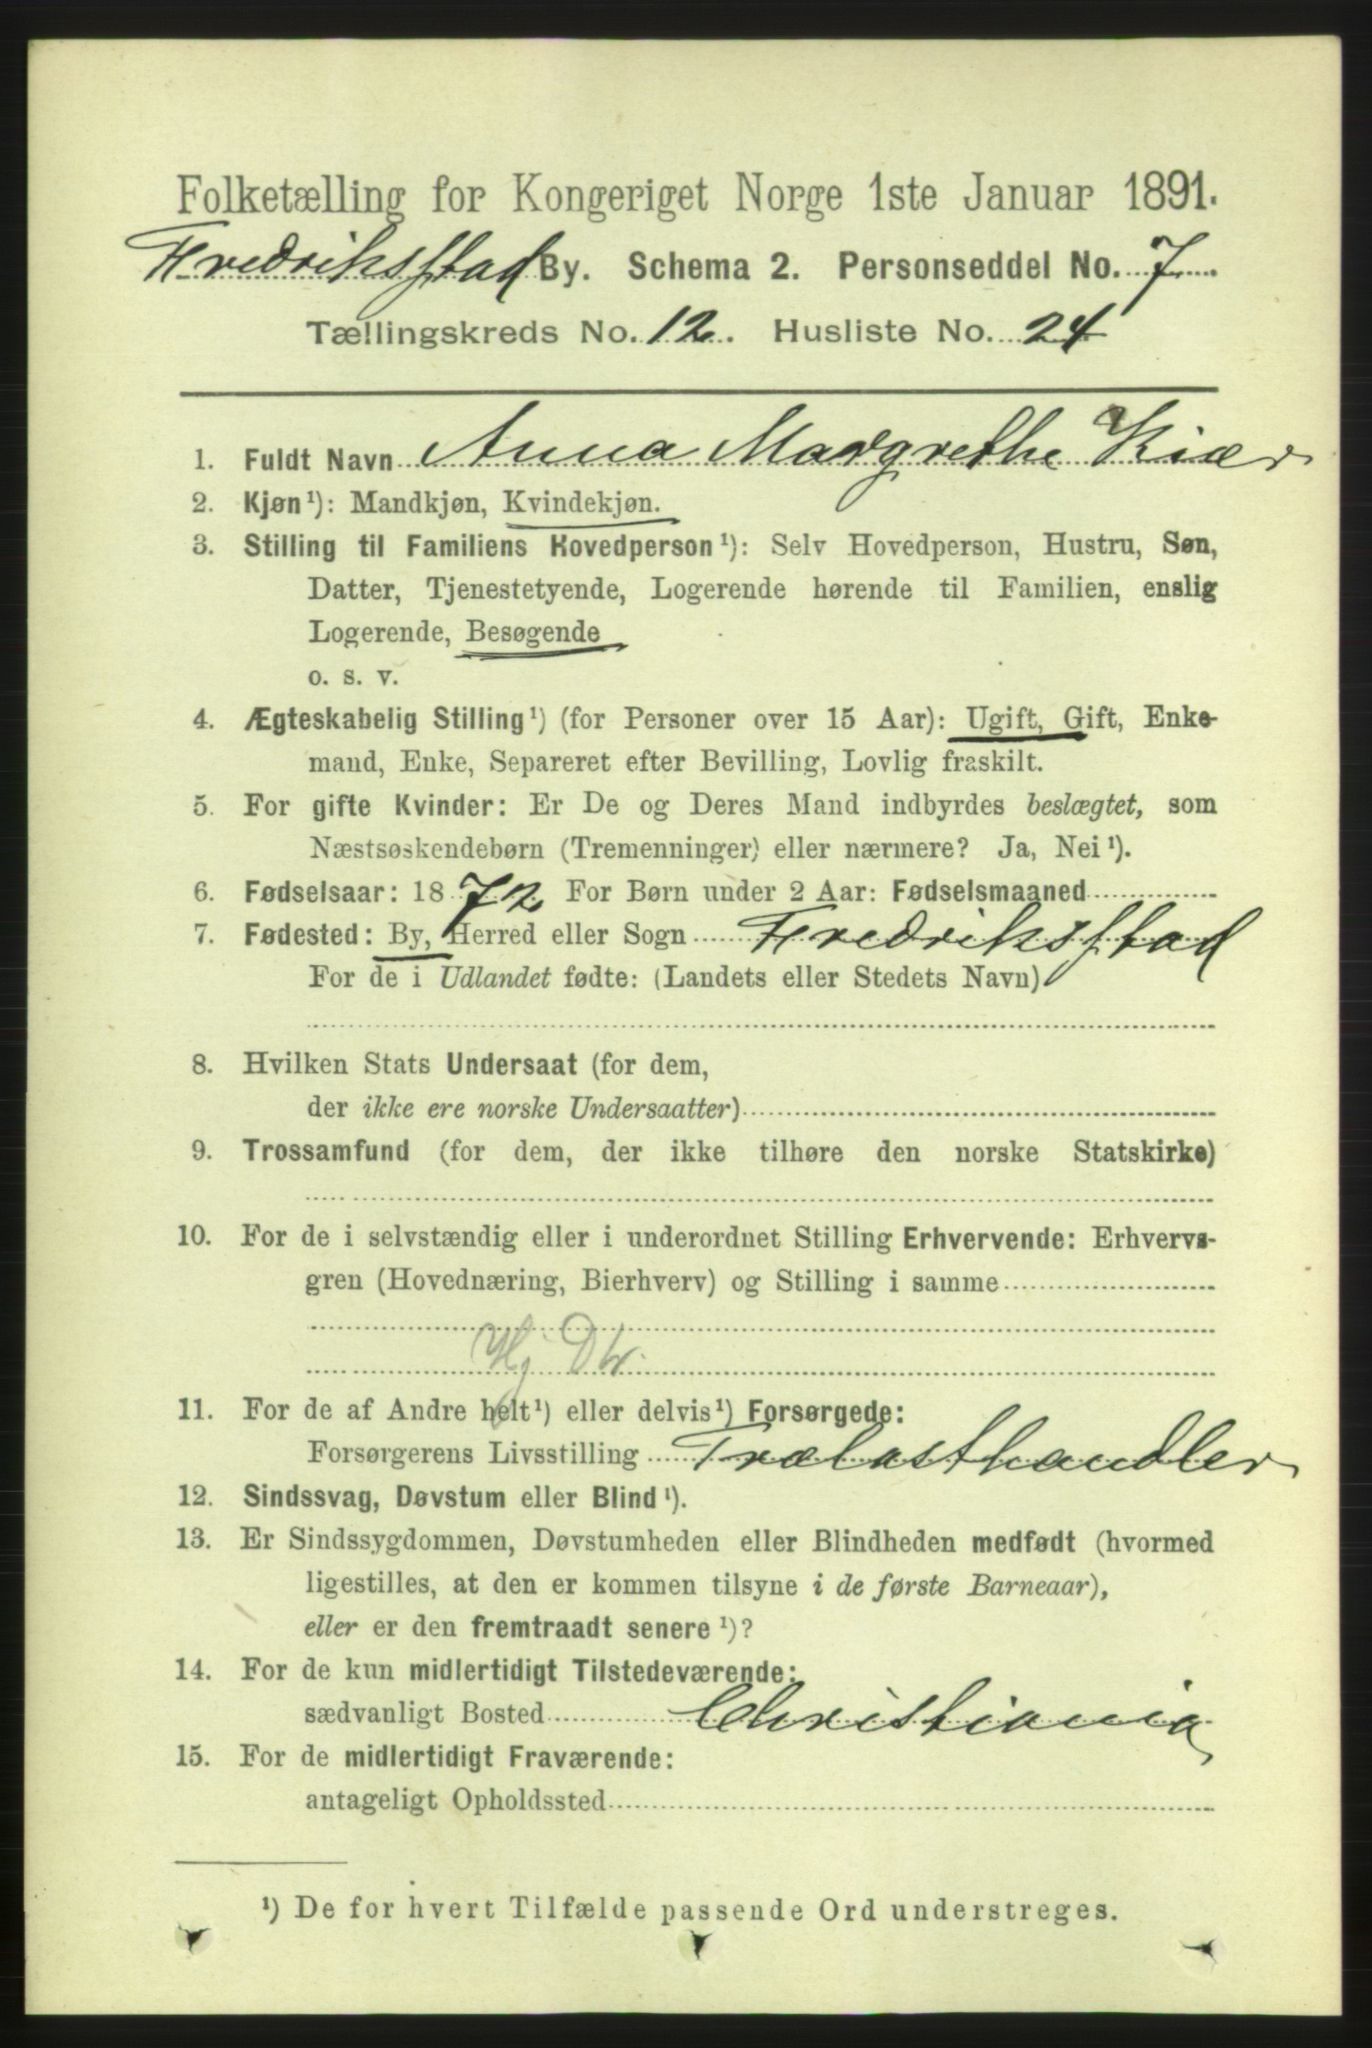 Folketælling for Kongeriget Norge 1ste Januar 1891.
Fredriksstad By. Schema 2. Personseddel No. 7
Tællingskreds No. 12. Husliste No. 24
1. Fuldt Navn Anna Margrethe Kiær
2. Kjøn¹): Mandkjøn, Kvindekjøn.
3. Stilling til Familiens Hovedperson¹): Selv Hovedperson, Hustru, Søn,
Datter, Tjenestetyende, Logerende hørende til Familien, enslig
Logerende, Besøgende
o. s. v.
4. Ægteskabelig Stilling¹) (for Personer over 15 Aar): Ugift, Gift, Enke-
mand, Enke, Separeret efter Bevilling, Lovlig fraskilt.
5. For gifte Kvinder: Er De og Deres Mand indbyrdes beslægtet, som
Næstsøskendebørn (Tremenninger) eller nærmere? Ja, Nei¹).
6. Fødselsaar: 1872 For Børn under 2 Aar: Fødselsmaaned
7. Fødested: By, Herred eller Sogn Fredriksstad
For de i Udlandet fødte: (Landets eller Stedets Navn)
8. Hvilken Stats Undersaat (for dem,
der ikke ere norske Undersaatter)
9. Trossamfund (for dem, der ikke tilhøre den norske Statskirke)
10. For de i selvstændig eller i underordnet Stilling Erhvervende: Erhvervs-
gren (Hovednæring, Bierhverv) og Stilling i samme
Hj Dtr.
11. For de af Andre helt¹) eller delvis¹) Forsørgede:
Forsørgerens Livsstilling Trælasthandler
12. Sindssvag, Døvstum eller Blind¹).
13. Er Sindssygdommen, Døvstumheden eller Blindheden medfødt (hvormed
ligestilles, at den er kommen tilsyne i de første Barneaar),
eller er den fremtraadt senere¹)?
14. For de kun midlertidigt Tilstedeværende:
sædvanligt Bosted Christiania
15. For de midlertidigt Fraværende:
antageligt Opholdssted
¹) De for hvert Tilfælde passende Ord understreges.